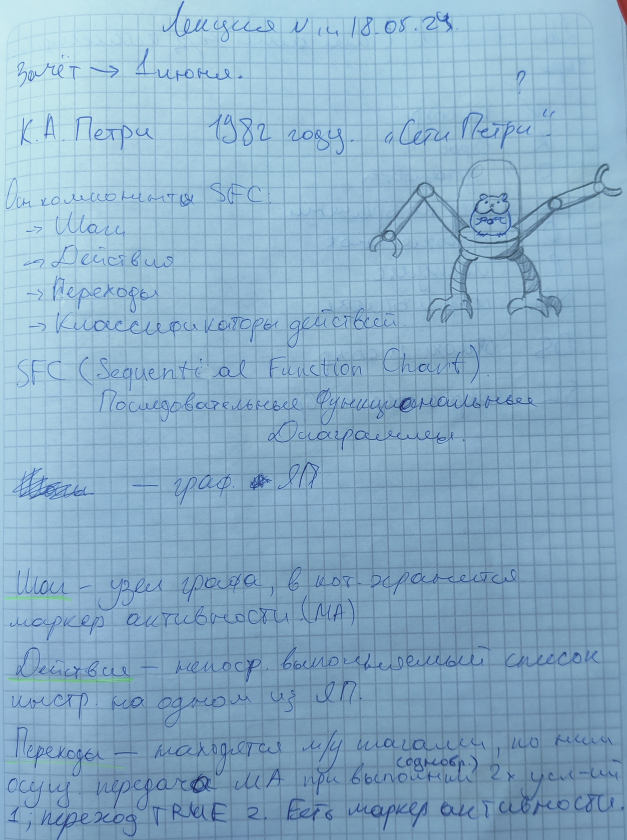 Лекция N 18.05.23
Зачёт → 1 июня.
?
К.А. Петри 1982 году. „Сети Петри“
Осн компоненты SFC:
→ Шаги
→ Действия
→ Переходы
→ Классификаторы действий
SFC (Sequential Function Chart).
Последовательные Функциональные
Диаграммы.
— граф. ЯП
Шаг – узел графа, в кот. хранится
маркер активности (МА)
Действия – непоср. выполняемый список
инстр. на одном из ЯП.
Переходы — находятся м/у шагами, по ним
(однобр.)
осущ. передача МА при выполнии 2х усл-ий
1, переход TRUE 2. Есть маркер активности.